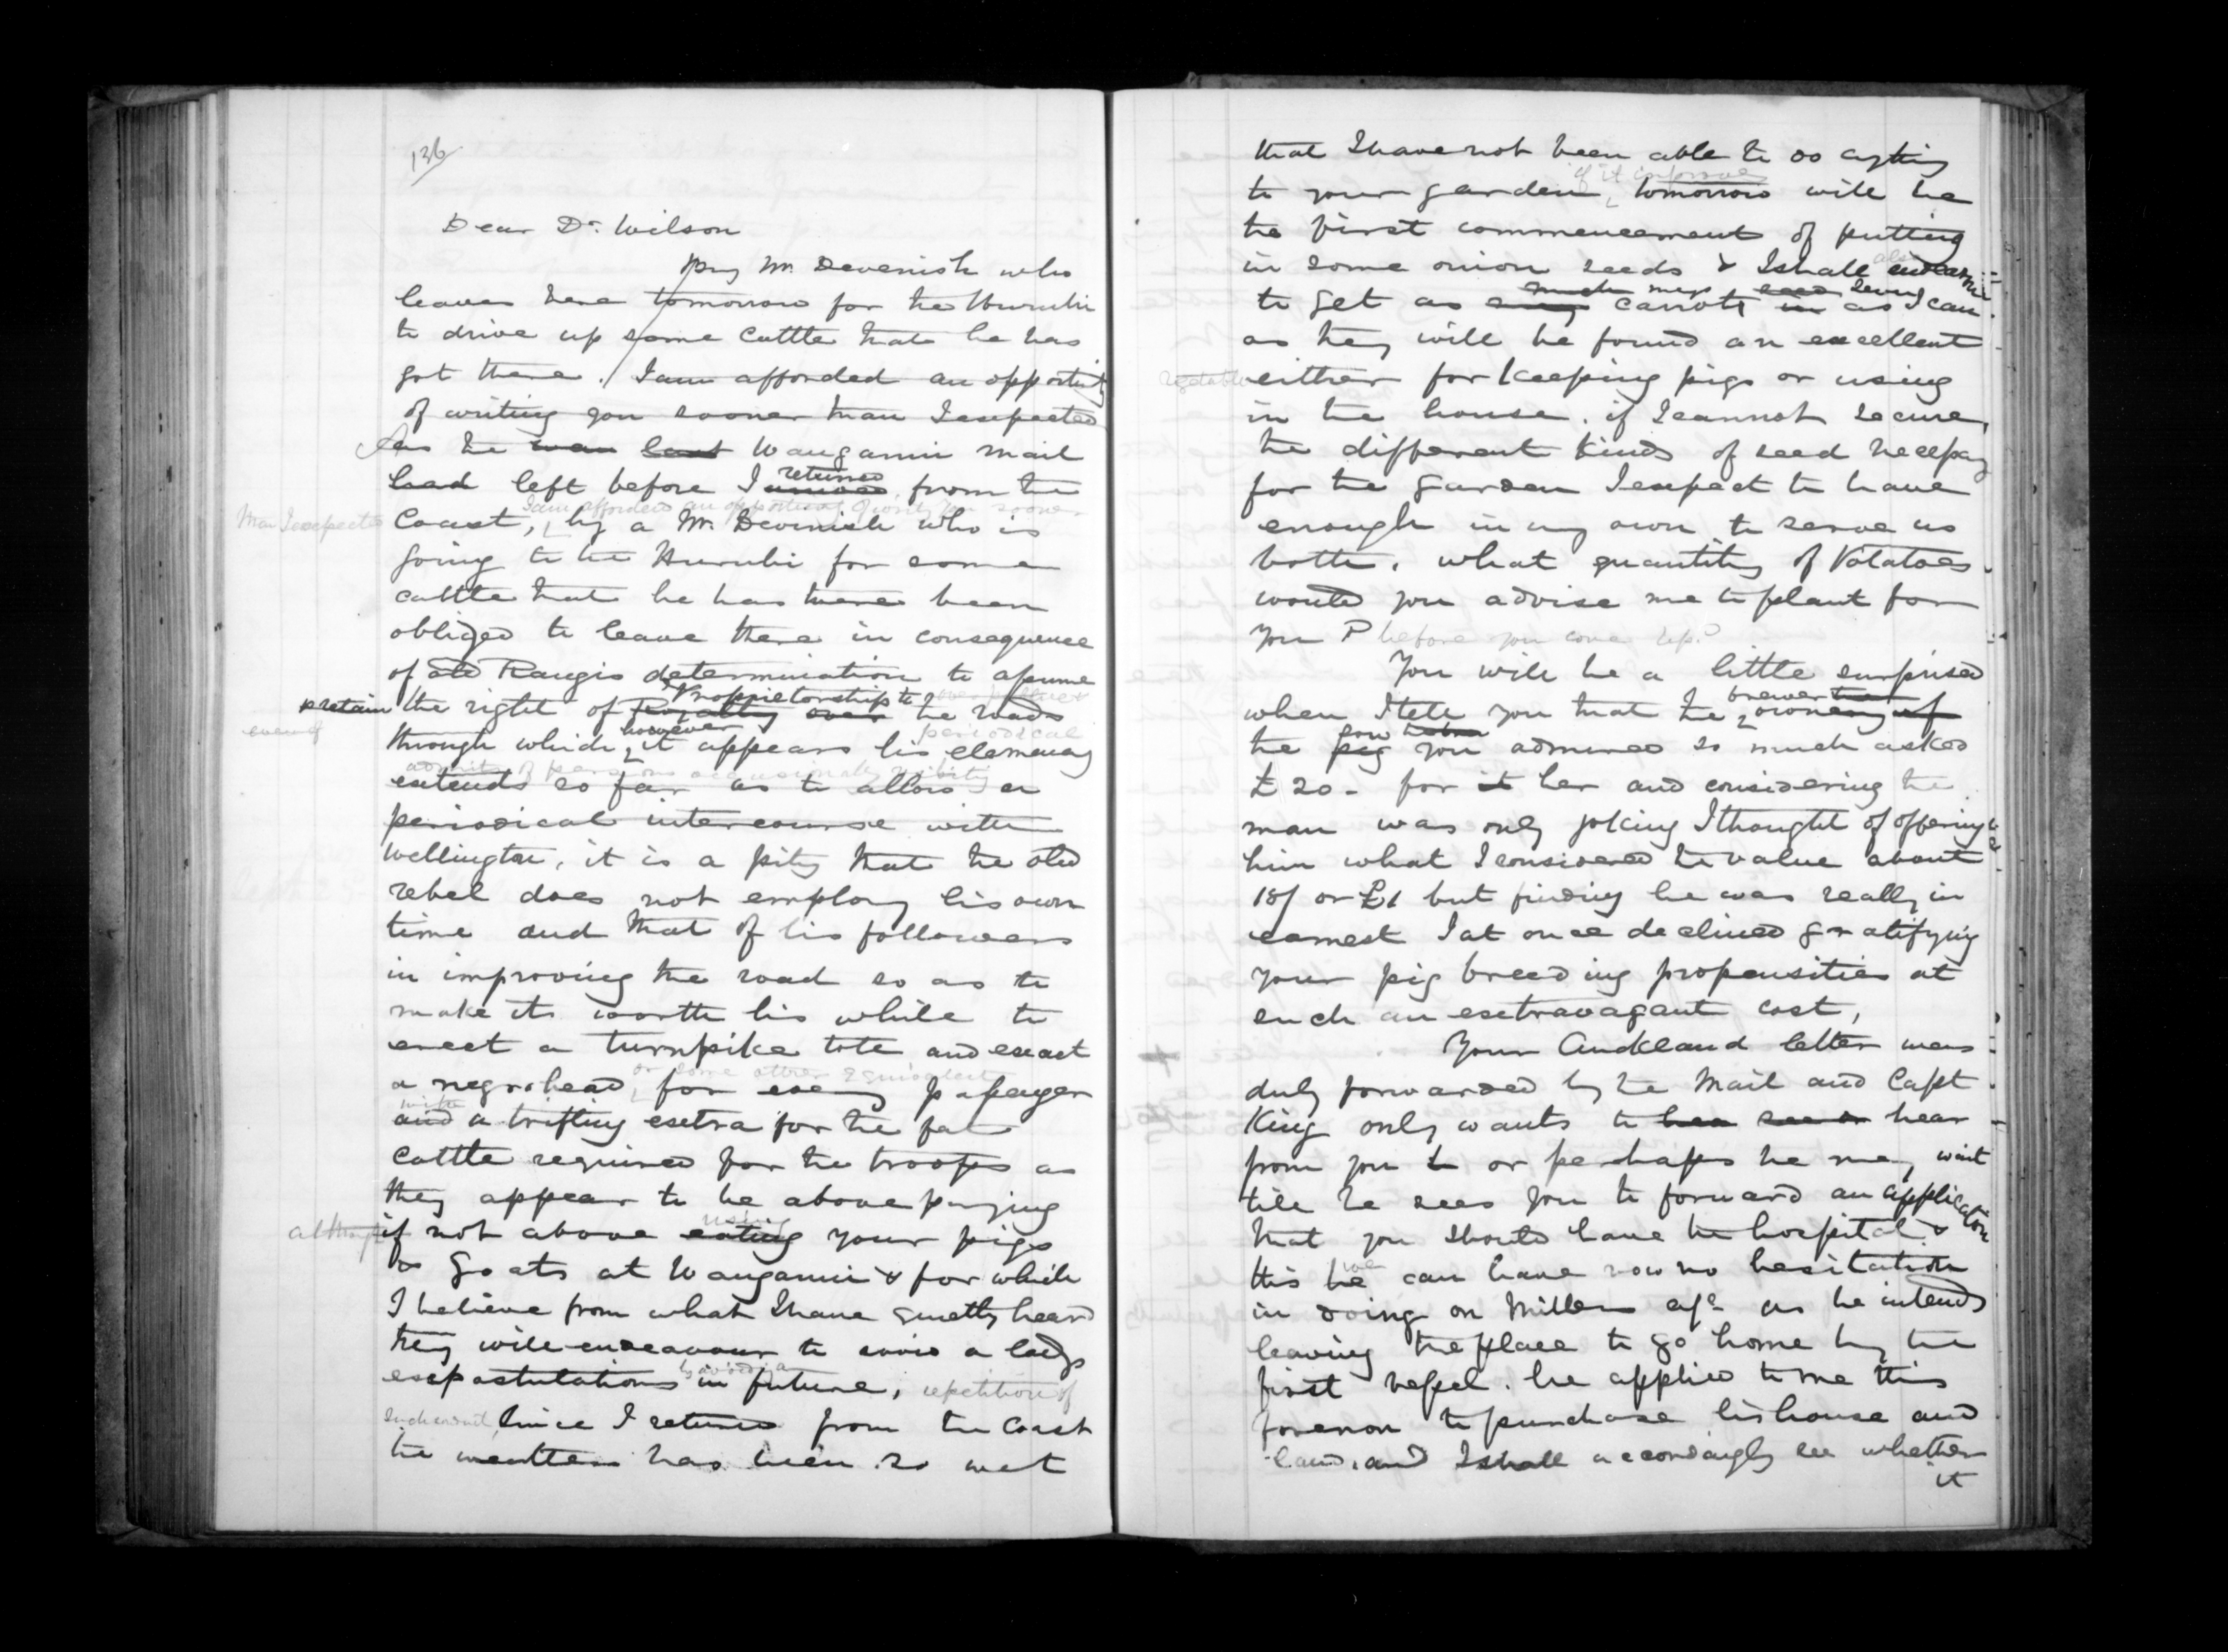 136
Dear Dr. Wilson
By Mr. Devenish who
leaves here tomorrow for the Hurubi
to drive up some cattle that he has
got there. I am afforded an opportunity
of writing you sooner than I expected
As the was last Wanganui mail
had left before I returned from the
I am afforded an opportunity of writing you sooner
than I expected Coast, by a Mr. Devenish who is
going to the Hurubi for some
cattle that he has there been
obliged to leave there in consequence
of old Rangis determination to assume
retain the right of Royalty over Proprietorship to the roads
through which however it appears his clemency
periodical
extends so far as to allow a
periodical intercourse with
Wellington, it is a pity that the old
rebel does not employ his own
time and that of his followers
in improving the road so as to
make it worth his while to
erect a turnpike tole and exact
or some other equivalent
a negrohead, for every passenger
with
and a trifling extra for the fat
cattle required for the troops as
they appear to be above paying
using
although if not above eating your pigs
& goats at Wanganui & for which
I believe from what I have heard
they will endeavour to avoid a ladys
by avoiding a
expostulations in future, repetition of
Since I returned from the Coast
the weather has been so wet
that I have not been able to do anything
if it improves
to your garden, tomorrow will be
the first commencement of putting
in some onion seeds & I shall also endeavour
much seed
to get as many carrots in as I can
as they will be found an excellent
vegetable either for keeping pigs or using
in the house. if I cannot secure
the different kinds of seed necessary
for the garden I expect to have
enough in my own to serve us
both. what quantity of Potatoes
would you advise me to plant for
you ? before you come up?
You will be a little surprised
when I tell you that the owner of
sow
the pig you admired so much asked
£20 - for it her and considering the
man was only joking I thought of offering
him what I considered the value about
18/ or £1 but finding he was really in
earnest I at once declined gratifying
your pig breeding propensities at
such an extravagant cost,
Your Auckland letter was
duly forwarded by the Mail and Capt
King only wants to hea see or hear
from you or perhaps he may wait
till he sees you to forward an application
that you should have the hospital &
this he can have now no hesitation
in doing on Millers a/c as he intends
leaving the place to go home by the
first vessel. he applied to me this
forenoon to purchase his house and
land, and I shall accordingly see whether
it